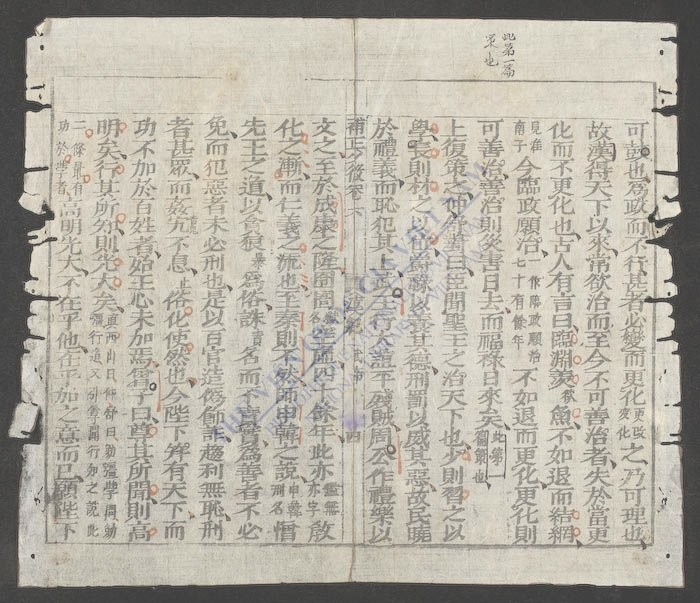 此第一篇
策也
可鼓也爲政而不行甚者必變而更化更改變化之乃可理也
故漢得天下以來常欲治而至今不可善治者失於當更
化而不更化也古人有言曰臨淵羨魚不如退而結網
見在南子今臨政願治作臨政願治七十有餘年不如退而更化更化則
可善治善治則災害日去而福祿日來矣此第一
上復策之仲舒對曰臣聞聖王之治天下也少則習之以
學長則材之以位爵祿以養其德刑罰以威其惡故民曉
於禮義而恥犯其上武王行大誼平殘賊周公作禮樂以
補正少微卷六 漢紀 武帝 四
文之至於成康之隆囹圄獄名空虛四十餘年此亦無亦字教
化之漸而仁義之流也至秦則不然師申韓之說申韓刑名憎
先王之道以貪狼爲俗誅責名而不責實爲善者不必
免而犯惡者未必刑也是以百官造僞飾詐趨利無恥刑
者甚眾而姦宄不息俗化使然也今陛下并有天下而
功不加於百姓者殆王心未加焉曾子曰尊其所聞則高
明矣行其所知則光大矣真西山曰仲舒曰勉彊學問勉彊行道又尊聞行知之說此
二條最有功於學者高明光大不在乎他在乎加之意而已願陛下